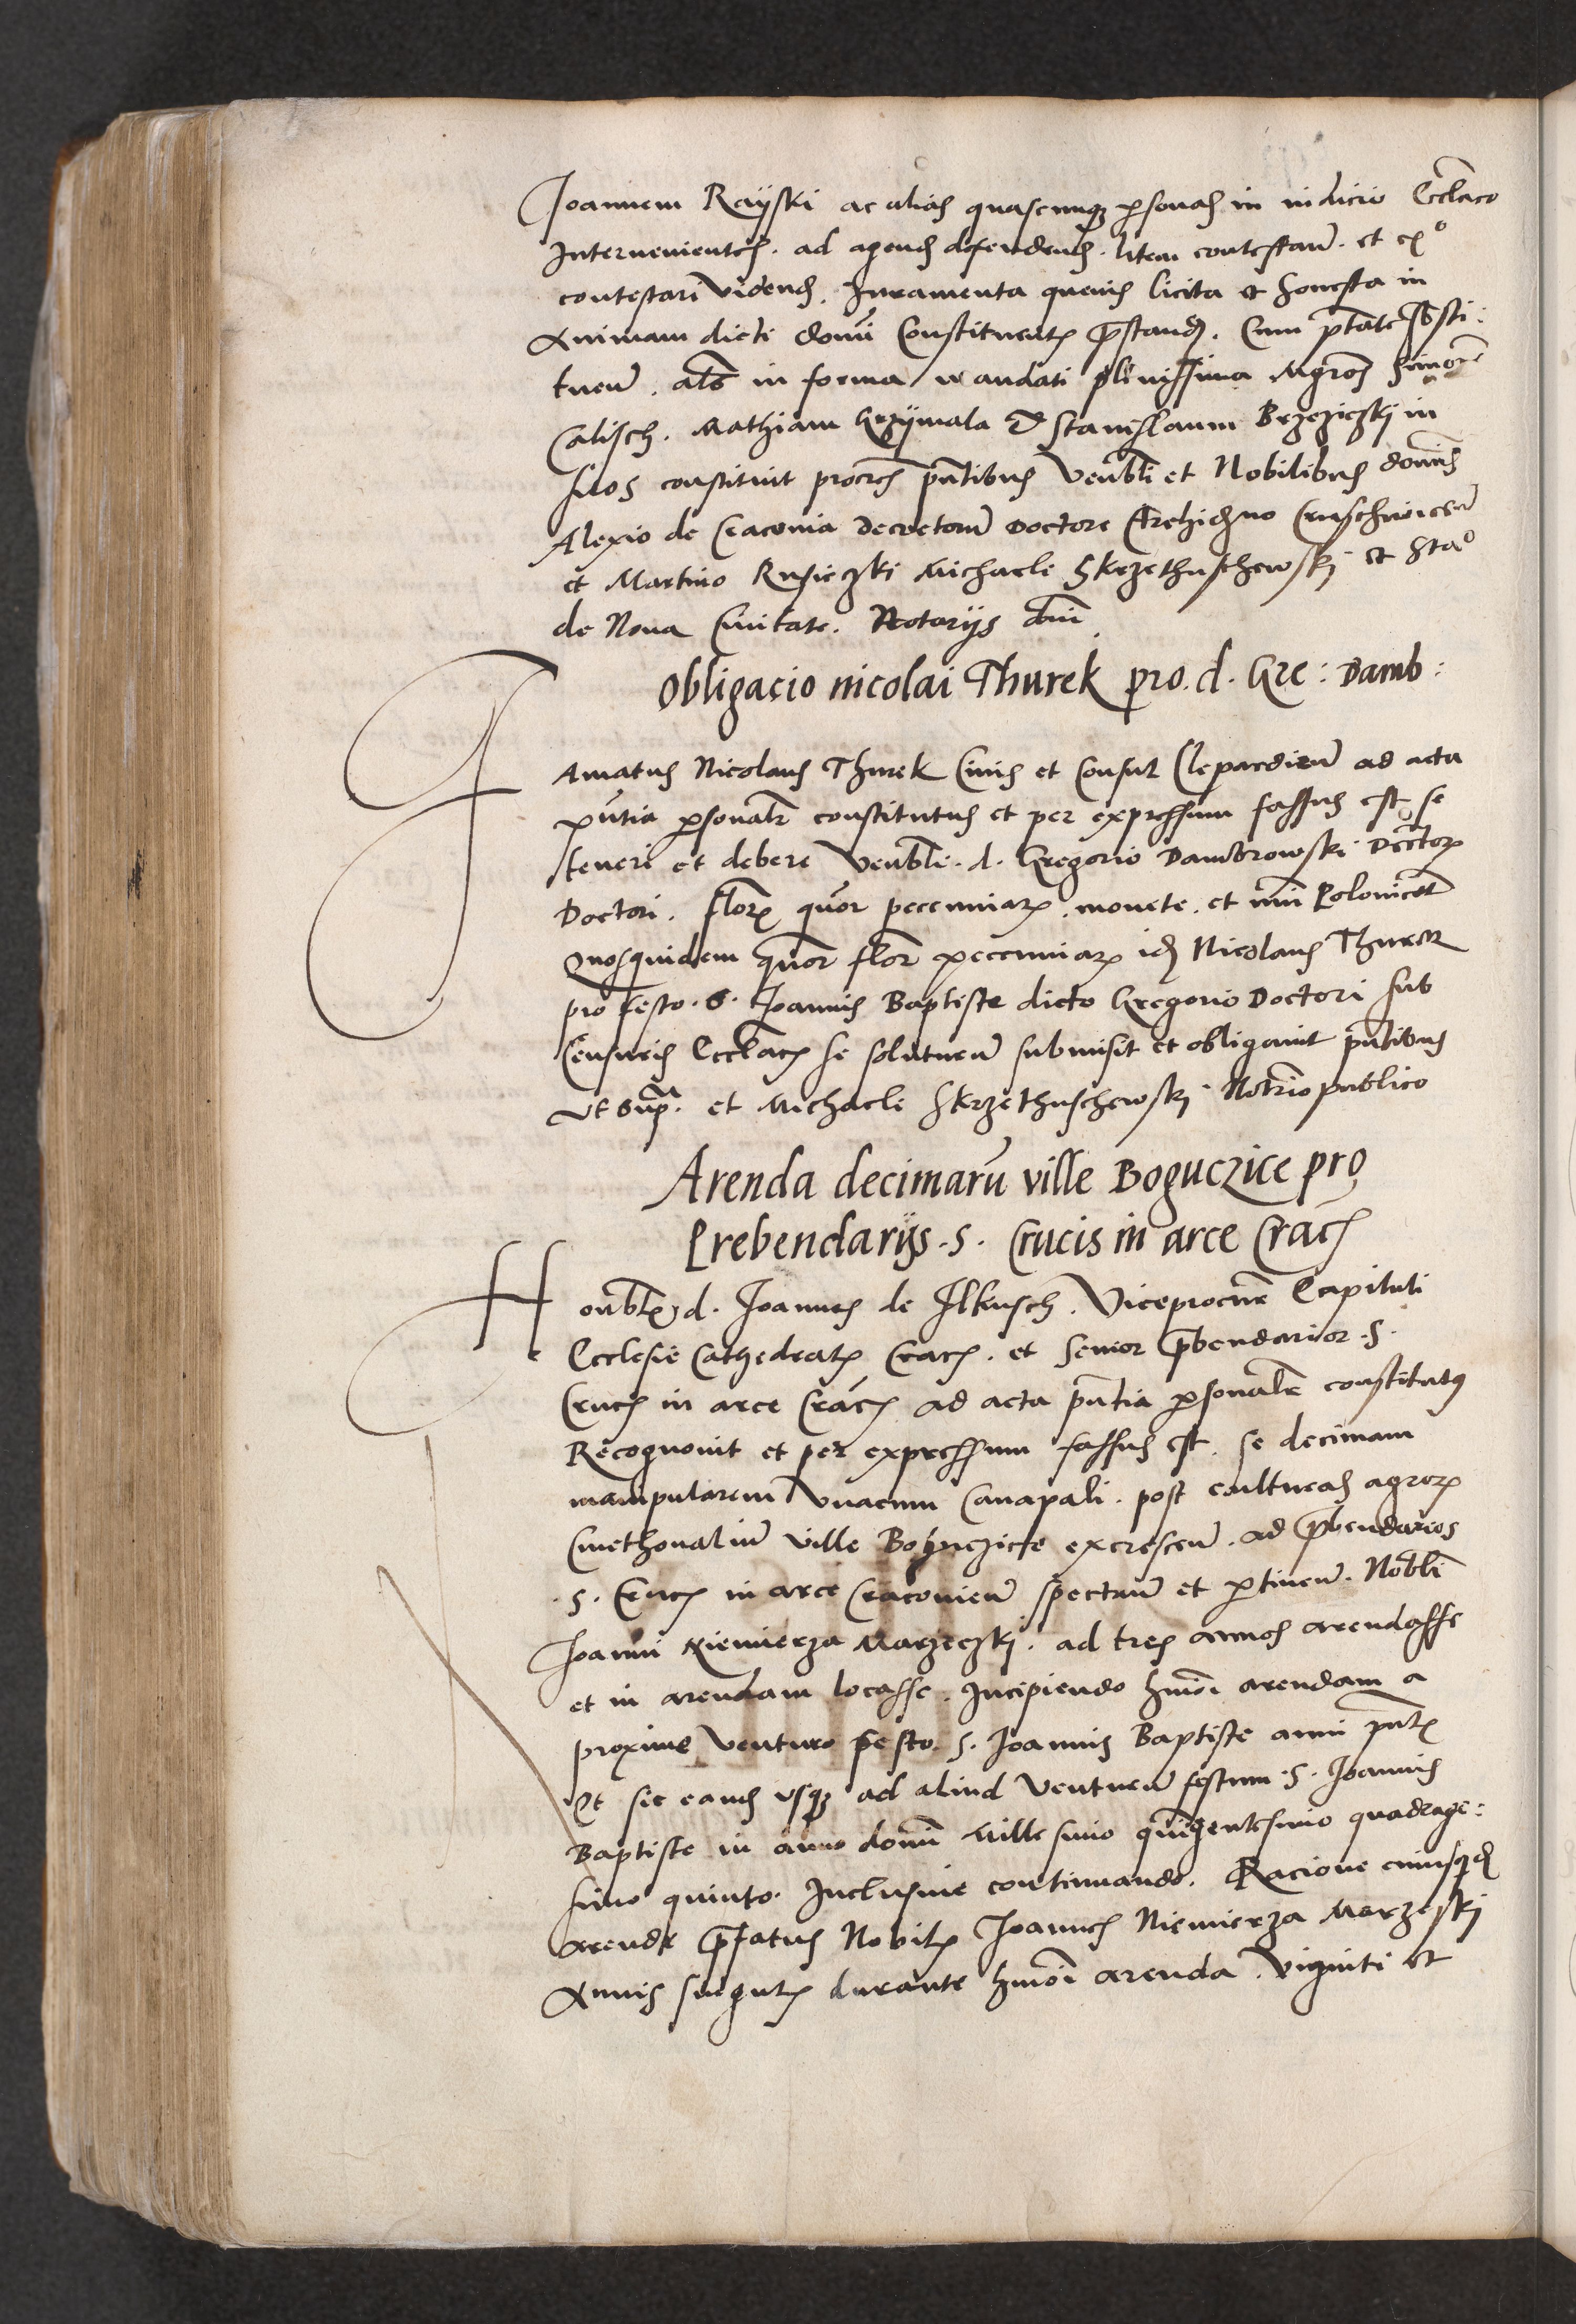 Joannem Rayski ac alias quascunq; personas in iudicio Ecclaco
Intervenientes. ad agend defendend. litem contestan. et eis
contestari Vidend. Iuramenta quevis licita et honesta in
Animam dicti domi Constituents prestand. Cum ptate Substi:
tuen. als in forma mandati plenissima Mgrm Simonem
Calisch. Mathiam Grzymala & Stanislaum Brzeziczki in
suos constituit procres pntibus Venbli et Nobilibus dominis
Alexio de Cracovia Decretorum Doctore Archidno Cruschvicen
et Martino Rusieczki Michaele Skrzethuschewski et Stao
de Nova Civitate. Notarijs dni
Obligacio nicolai Thurek pro. d. Gre: Damb:
Famatus Nicolaus Thurek Civis et Consul Clepardien ad acta
pntia psonalr constitutus et per expressum fassus est se
teneri et debere Venbli. d. Gregorio Dambrowski Decretor
Doctori. flor quor pecuniar. monete. et nri Polonicat
Quosquidem quor flor pecuniar id Nicolaus Thurek
pro festo. S. Joannis Baptiste dicto Gregorio Doctori sub
Censuris Ecclac se soluturum submisit et obligavit pntibus
vt supra. et Michaele Skrzethuschewski Notrio publico
Arenda decimaru ville Boguczice pro
Prebendarijs. S. Crucis in arce Crac
Honblis d. Joannes de Ilkusch. Viceprocur Capituli
Ecclesie Cathedral Crac. et Senior prbendarior. S.
Cruc in arce Crac ad acta pntia psonalr constitutus
Recognovit et per expressum fassus est. se decimam
manipularem Vnacum Canapali. post culturas agror
Cmethonalium ville Boguczicse excrescen. ad prbendarios
.S. Cruc in arce Cracovien spectan et ptinen. Nobli
Joanni Niemierza Marzeczki. ad tres annos arendasse
et in arendam locasse. Incipiendo hmoi arendam a
proxime Venturo festo. S. Joannis Baptiste anni pnts
Et sic eand vsq; ad aliud Venturum festum. S. Joannis
Baptiste in anno domi Millesimo quingentesimo quadrage:
simo quinto. Inclusive continuando. Racione cuiusqd
arende prfatus Nobilis Joannes Niemierza Marzeski
Annis singulis durante hmoi arenda. Viginti et